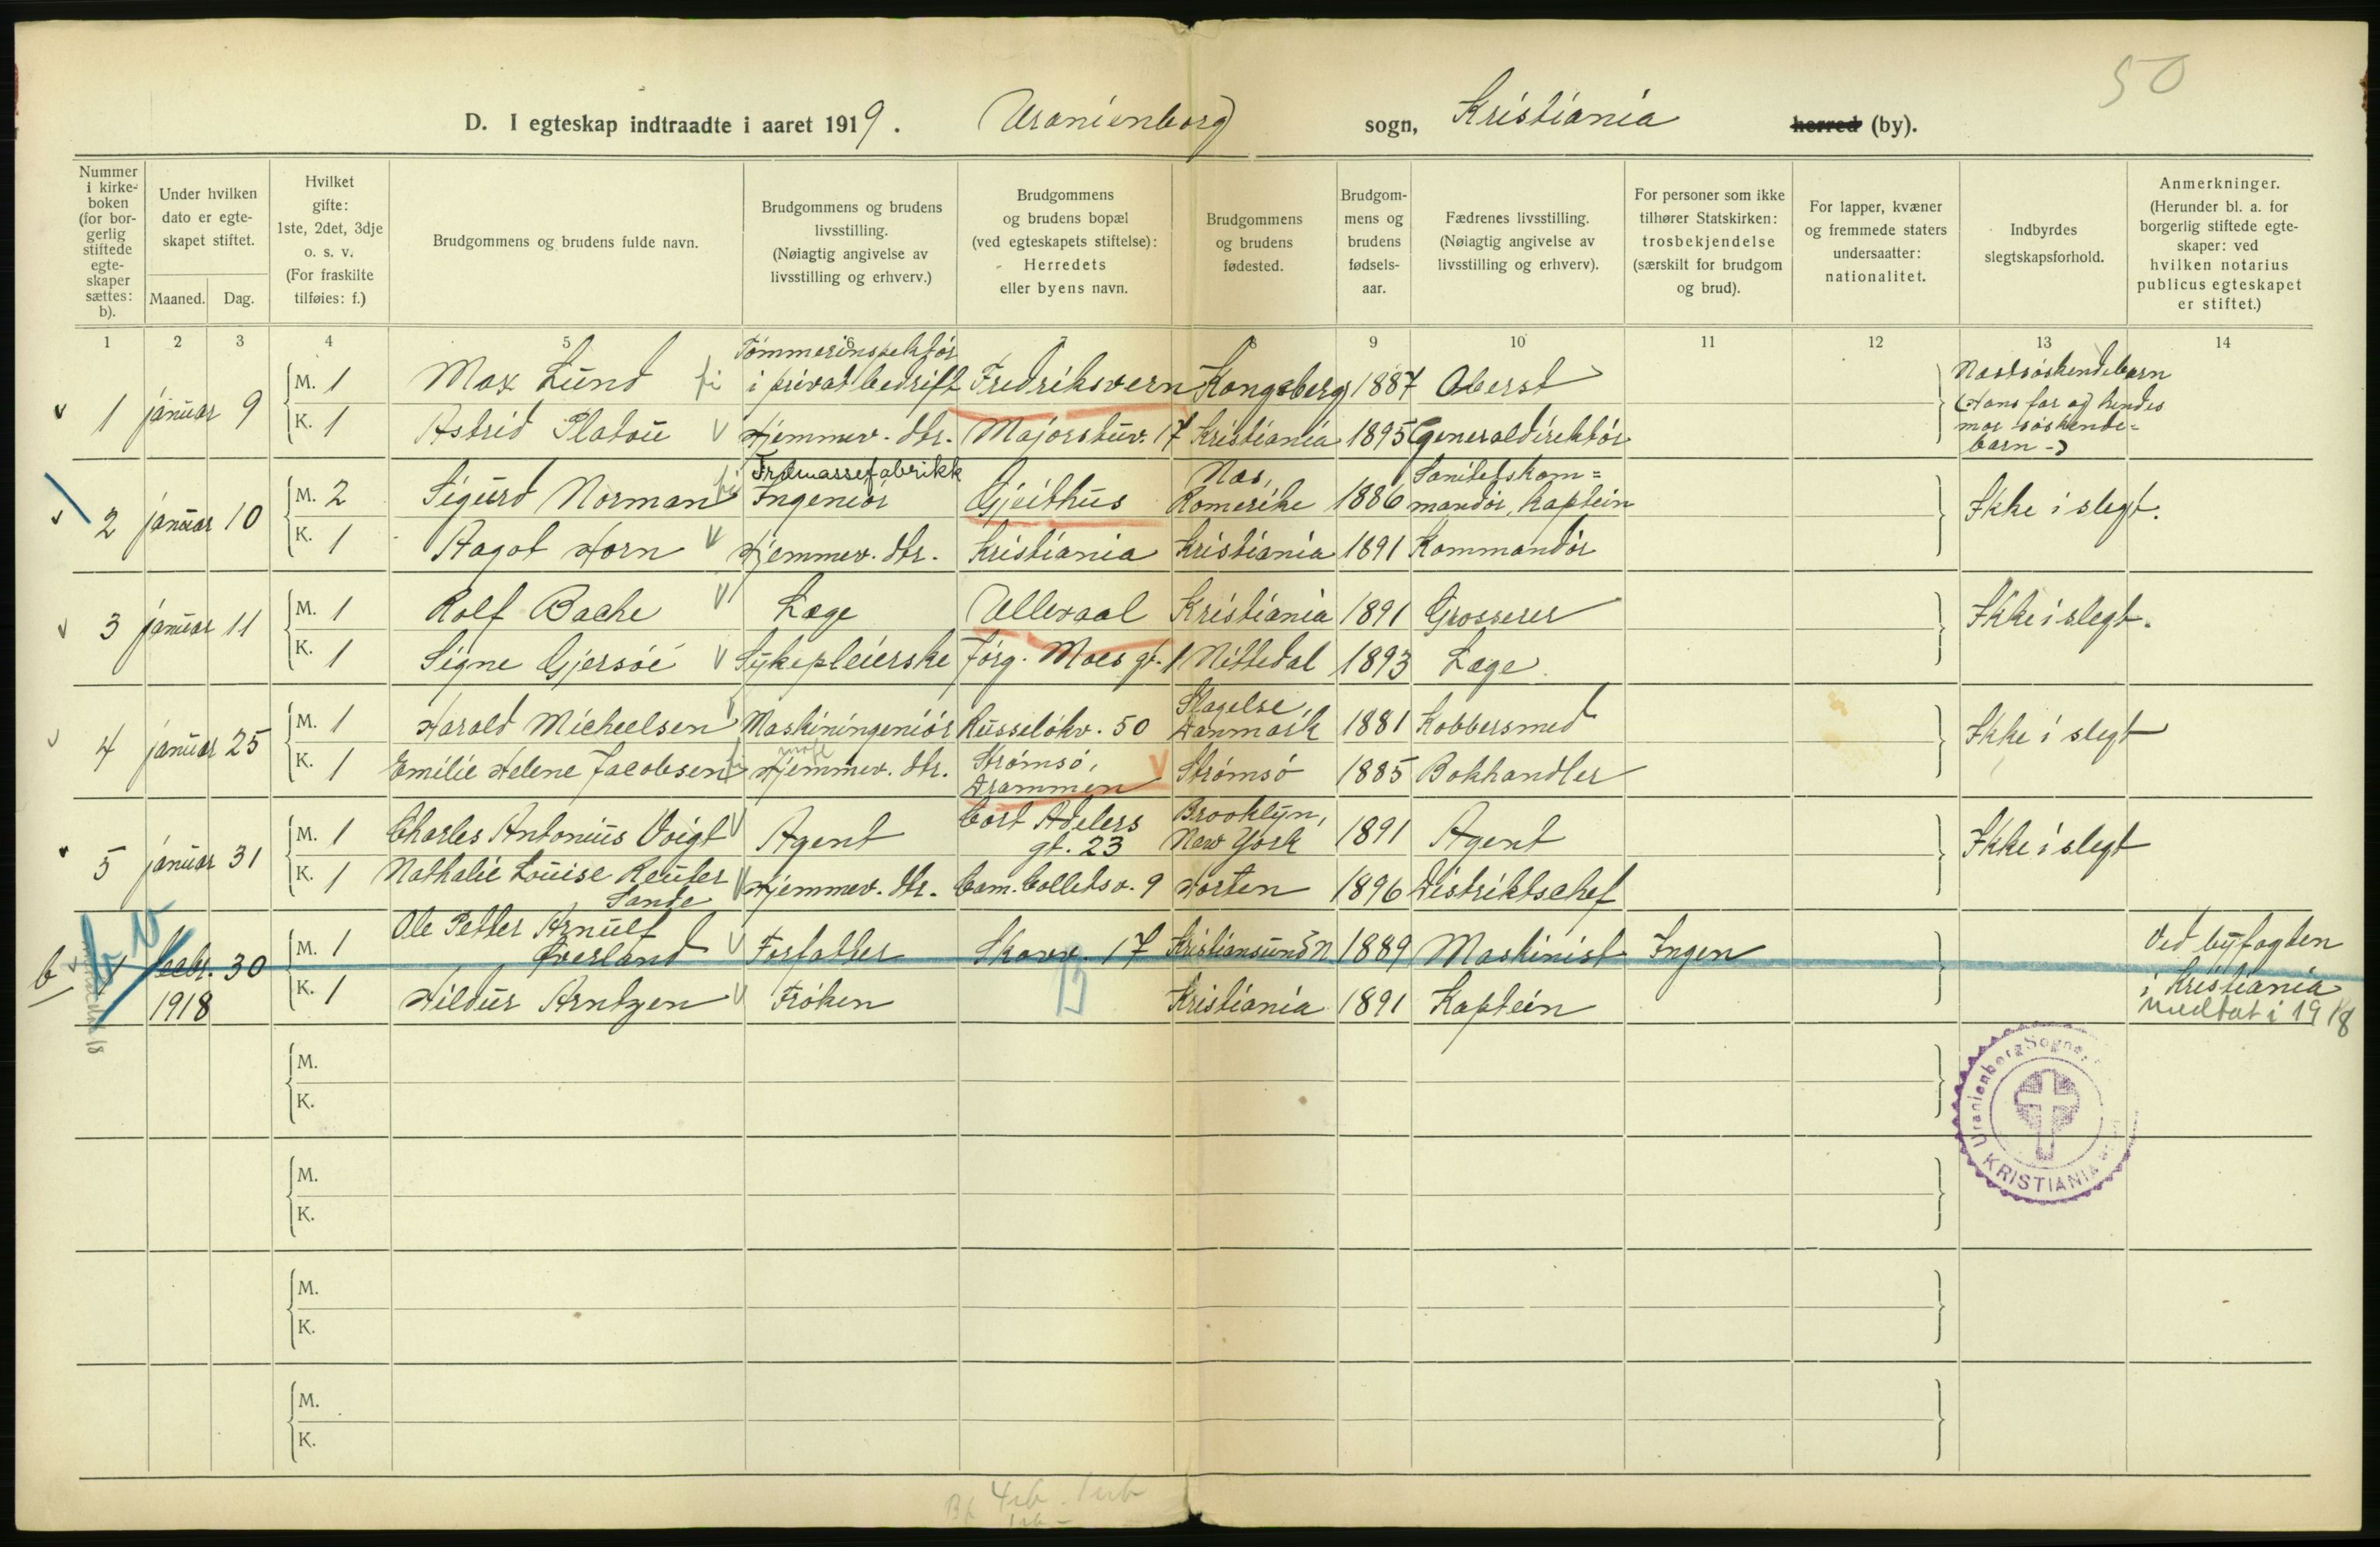 50
D. I egteskap indtraadte i aaret 1919. Uranienborg sogn, Kristiania herred (by).
Nummer i kirkeboken (for borgerlig stiftede egteskaper sættes: b).
Under hvilken dato er egteskapet stiftet.
Maaned. Dag.
Hvilket gifte: 1ste, 2det, 3dje o. s. v. (For fraskilte tilføies: f.)
Brudgommens og brudens fulde navn.
Brudgommens og brudens livsstilling. (Nøiagtig angivelse av livsstilling og erhverv.)
Brudgommens og brudens bopæl (ved egteskapets stiftelse): Herredets eller byens navn.
Brudgommens og brudens fødested.
Brudgommens og brudens fødselsaar.
Fædrenes livsstilling. (Nøiagtig angivelse av livsstilling og erhverv).
For personer som ikke tilhører Statskirken: trosbekjendelse (særskilt for brudgom og brud).
For lapper, kvæner og fremmede staters undersaatter: nationalitet.
Indbyrdes slegtskapsforhold.
Anmerkninger. (Herunder bl. a. for borgerlig stiftede egteskaper: ved hvilken notarius publicus egteskapet er stiftet.)
1 2 3 4 5 6 7 8 9 10 11 12 13 14
1 januar 9
M. 1 Max Lund Tømmerinspektør i privat bedrift Fredriksvern Kongsberg 1887 Oberst
K. 1 Astrid Platou Hjemmev. dtr. Majorstuv. 17 Kristiania 1895 Generaldirektør
Næstsøskendebarn
(Hans far og hendes
mor søskende=
barn -)
2 januar 10
M. 2 Sigurd Norman Træmassefabrikk Ingeniør Gjeithus Nes, Romerike 1886 Sanitetskom= mandør, Kaptein
K. 1 Hagot Horn Hjemmev. dtr. Kristiania Kristiania 1891 Kommandør
Ikke i slegt.
3 januar 11
M. 1 Rolf Bache Læge Ullevaal Kristiania 1891 Grosserer
K. 1 Signe Gjersøe Sykepleierske Jørg. Moes gt. 1 Nittedal 1893 Læge.
Ikke i slegt.
4 januar 25
M. 1 Harald Micheelsen Maskiningeniør Russeløkv. 50 Slagelse, Danmark 1881 Kobbersmed
K. 1 Emilie Helene Jacobsen Hjemmev. dtr. Strømsø, Drammen Strømsø 1885 Bokhandler
Ikke i slegt
5 januar 31
M. 1 Charles Antonius Voigt Agent Cort Adelers gt. 23 Brooklyn, New York 1891 Agent
K. 1 Nathalie Louise Reuter Sande Hjemmev. dtr. Cam. Colletsv. 9 Horten 1896 Distriktschef
Ikke i slegt
b 1 decbr. 30
1918
M. 1 Ole Petter Arnulf Øverland Forfatter Skovv. 17 Kristiansund N 1889 Maskinist Ingen
K. 1 Hildur Arntzen Frøken Kristiania 1891 Kaptein
Ved byfogden
i Kristiania
medtat i 1918
M.
K.
M.
K.
M.
K.
M.
K.
Uranienborg Sogne
KRISTIANIA